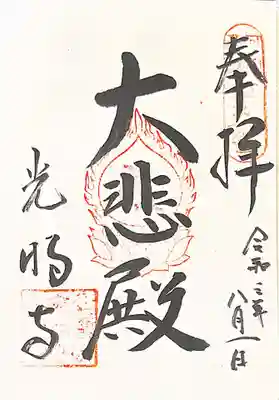 奉拝
令和三年
八月一日
大悲殿
光明寺